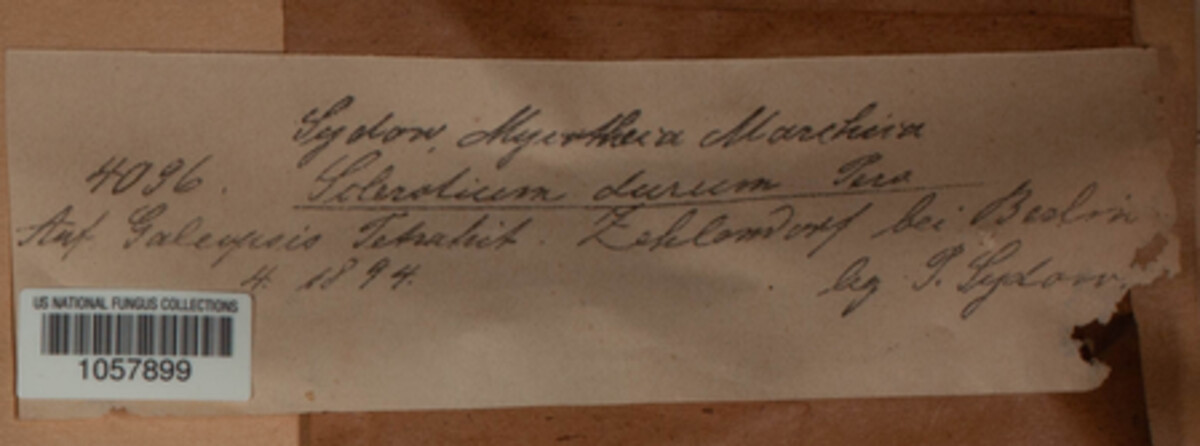 Sydow, Mycotheca Marchica
4096. Sclerotium durum Pers
Auf Galeopsis Tetrahit. Zehlendorf bei Berlin
4. 1894. leg P. Sydow.
US NATIONAL FUNGUS COLLECTIONS
1057899